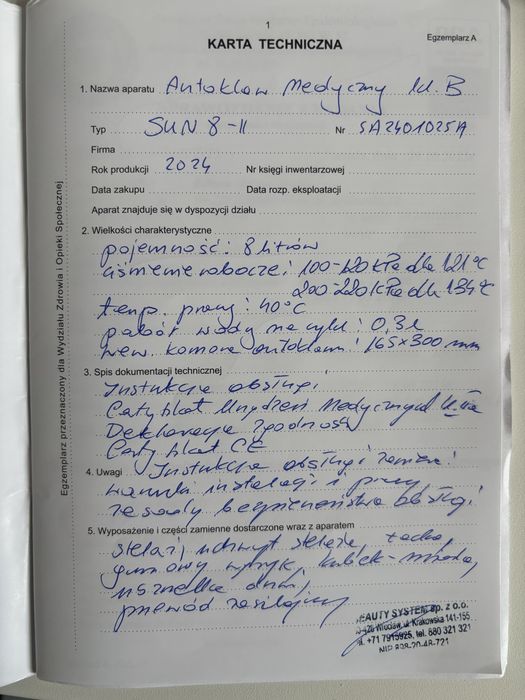 1
KARTA TECHNICZNA
Egzemplarz A
1. Nazwa aparatu Autoklaw Medyczny kl. B
Typ SUN 8-II Nr SA2401025A
Firma
Rok produkcji 2024 Nr księgi inwentarzowej
Data zakupu Data rozp. eksploatacji
Aparat znajduje się w dyspozycji działu
2. Wielkości charakterystyczne
pojemność: 8 litrów
ciśnienie robocze: 100-120 kPa dla 121°C
200-220 kPa dla 134°C
temp. pracy: 40°C
pobór wody na cykl: 0,3l
wew. komora autoklawu: 165x300 mm
3. Spis dokumentacji technicznej
Instrukcja obsługi
Certyfikat Urządzeń Medycznych
Deklaracja zgodności
Certyfikat CE
4. Uwagi Instrukcja obsługi zawiera:
warunki instalacji i pracy,
zasady bezpieczeństwa obsługi
5. Wyposażenie i części zamienne dostarczone wraz z aparatem
stelaż, uchwyt stelaża, tacka,
gumowy wężyk, kubek-miarka,
uszczelka drzwi,
przewód zasilający
BEAUTY SYSTEM sp. z o.o.
Wrocław, ul. Krakowska 141-155
tel. +71 7915925, tel. 880 321 321
Egzemplarz przeznaczony dla Wydziału Zdrowia i Opieki Społecznej